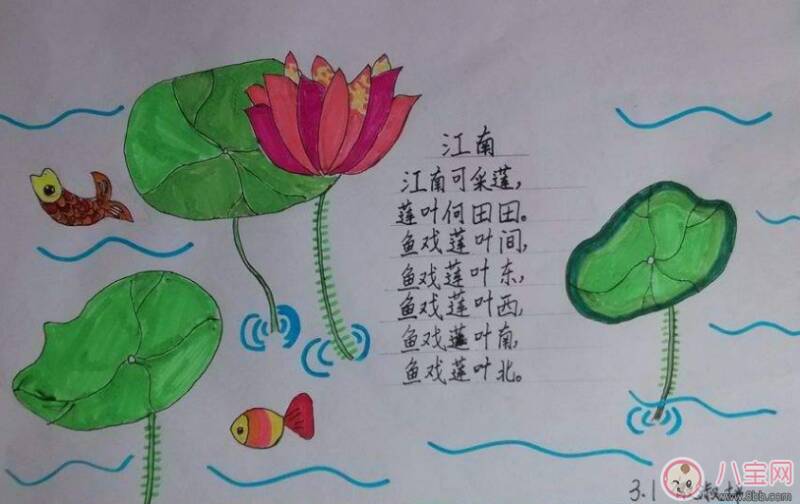 江南
江南可采莲,
莲叶何田田。
鱼戏莲叶间,
鱼戏莲叶东,
鱼戏莲叶西,
鱼戏莲叶南,
鱼戏莲叶北。
3.1
八宝网
www.8bb.com